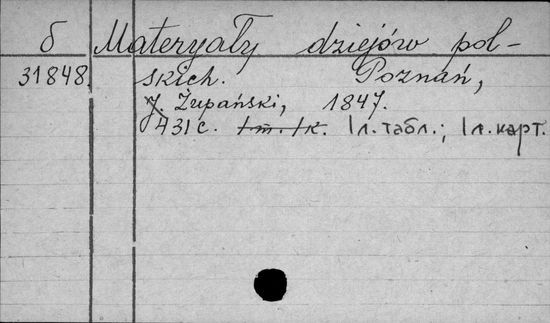 б Materyały dziejów pol-
31848 skich. Poznań,
J. Żupański, 1847.
431 с. 1 т. 1 к. 1 л. табл.; 1 л. карт.